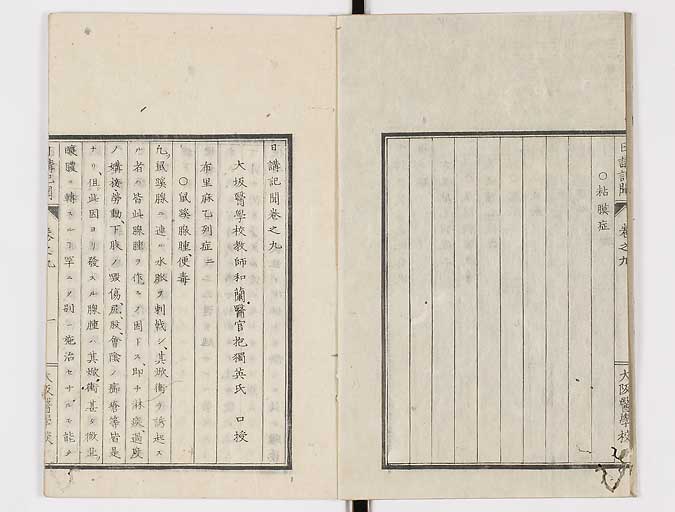 日講記聞 卷之九 大阪醫學校
○粘膜症
日講記聞卷之九
大坂醫學校敎師和蘭醫官抱獨英氏 口授
布里麻乜列症二
○鼠蹊腺腫便毒
九鼠蹊腺ニ連ル水脈ヲ刺戟シ其焮衝ヲ誘起ス
ル者ハ皆此腺腫ヲ作スノ因トス即チ淋疾過度
ノ媾接勞動下肢ノ毀傷尻股會陰ノ瘡瘍等皆是
ナリ但此因ヨリ發スル腺腫ハ其焮衝甚タ微ニ
釀膿ニ轉スル丁罕ニメ別ニ施治セサルモ能ク
日講記聞 卷之九 一 大阪醫學校